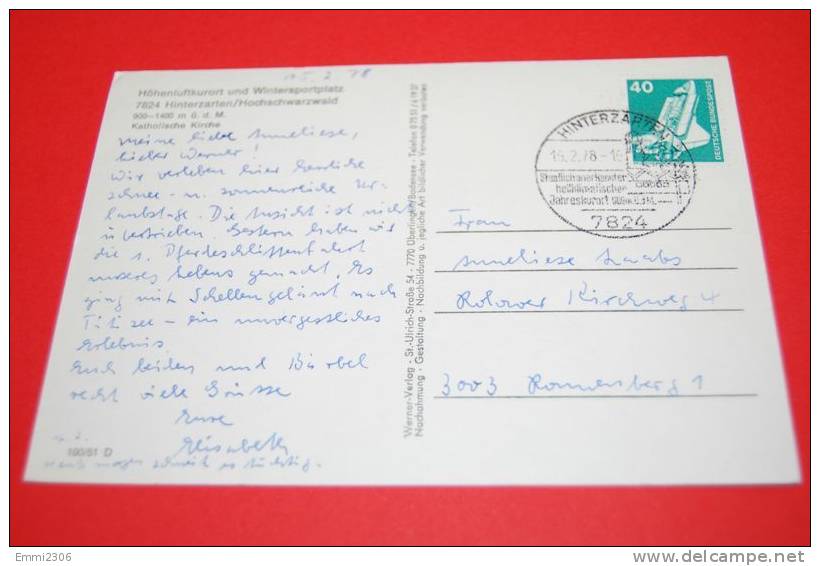 15.2.78
Höhenluftkurort und Wintersportplatz
7824 Hinterzarten/Hochschwarzwald
900–1400 m ü. d. M.
Katholische Kirche
meine liebe Anneliese,
lieber Werner!
Wir verleben hier herrliche
schnee- u. sonnenreiche Ur-
laubstage. Die Ansicht ist nicht
übertrieben. Gestern haben wir
die 1. Pferdeschlittenfahrt
unseres Lebens gemacht. Es
ging mit Schellengeläut nach
Titisee – ein unvergessliches
Erlebnis.
Euch beiden und Bärbel
recht viele Grüsse
Eure
Elisabeth
190/51 D
schneit es tüchtig.
Werner-Verlag · St.-Ulrich-Straße 54 · 7770 Überlingen/Bodensee · Telefon
Nachahmung · Gestaltung · Nachbildung u. jegliche Art bildlicher Verwendung verboten
40
DEUTSCHE BUNDESPOST
HINTERZARTEN
15.2.78
Staatlich anerkannter
heilklimatischer
Jahreskurort
7824
Frau
Anneliese
Kirchweg 4
3003 Ronnenberg 1
Emmi2306
www.delcampe.net